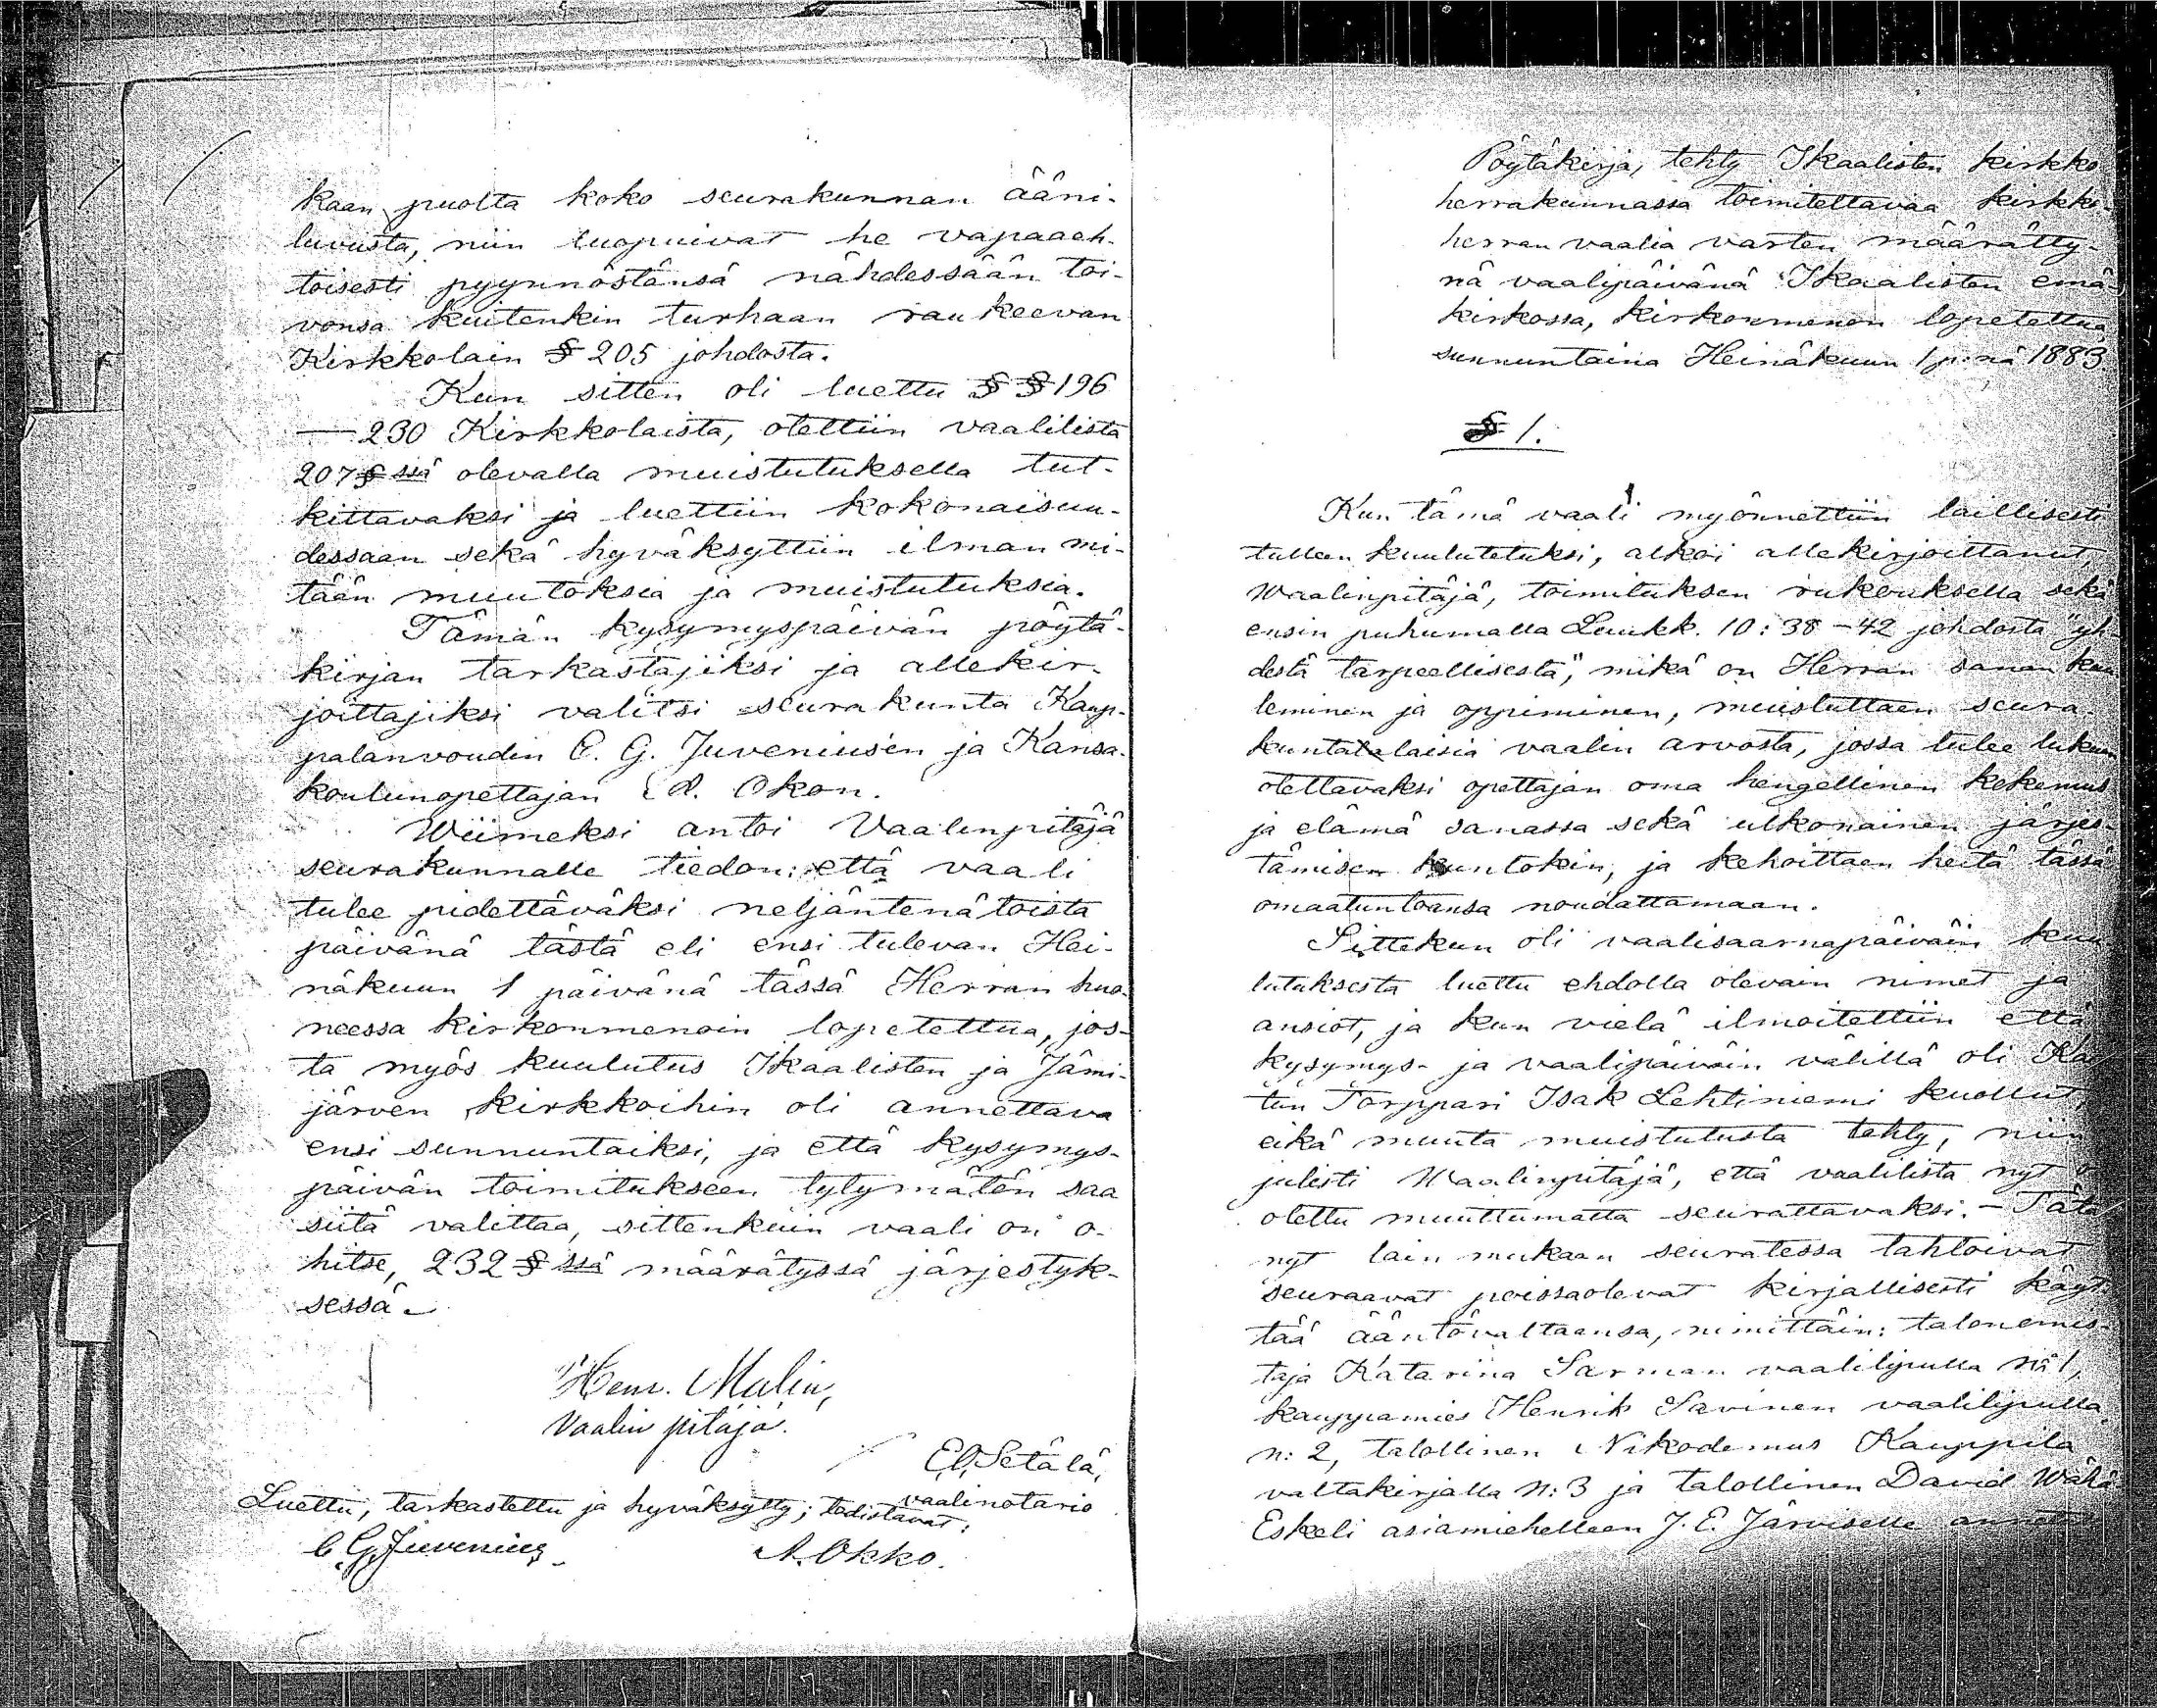 kaan puolta koko seurakunnan ääni-
luvusta, niin luopuivat he vapaaeh-
toisesti pyynnöstänsä nähdessään toi-
vonsa kuitenkin turhaan raukeevan
Kirkkolain § 205 johdosta.
Kun sitten oli luettu § § 196
— 230 Kirkkolaista, otettiin vaalilista
207 § ssä olevalla muistutuksella tut-
kittavaksi ja luettiin kokonaisuu-
dessaan sekä hyväksyttiin ilman mi-
tään muutoksia ja muistutuksia.
Tämän kysymyspäivän pöytä-
kirjan tarkastajiksi ja allekir-
joittajiksi valitsi seurakunta Kaup-
palanvoudin C. G. Juveniusen ja Kansa-
koulunopettajan A. Okon.
Wiimeksi antoi Vaalinpitäjä
seurakunnalle tiedon: että vaali
tulee pidettäväksi neljäntenätoista
päivänä tästä eli ensi tulevan Hei-
näkuun 1 päivänä tässä Herran huo-
neessa kirkonmenoin lopetettua, jos-
ta myös kuulutus Ikaalisten ja Jämi-
järven kirkkoihin oli annettava
ensi sunnuntaiksi, ja että kysymys-
päivän toimitukseen tytymätön saa
siitä valittaa, sittenkuin vaali on o-
hitse, 232 § ssä määrätyssä järjestyk-
sessä.
Henr. Malin,
Vaalin pitäjä.
E. Setälä,
vaalinotario
Luettu, tarkastettu ja hyväksytty; todistavat:
C. G. Juvenius
A. Okko.
Pöytäkirja, tehty Ikaalisten kirkko
herrakunnassa toimitettavaa kirkko-
herran vaalia varten määrätty-
nä vaalipäivänä Ikaalisten emä-
kirkossa, kirkonmenon lopetettua
sunnuntaina Heinäkuun 1 p:nä 1883.
§ 1.
Kun tämä vaali myönnettiin laillisesti
tulleen kuulutetuksi, alkoi allekirjoittanut,
Waalinpitäjä, toimituksen rukouksella sekä
ensin puhumalla Luukk. 10: 38 – 42 johdosta "yh-
destä tarpeellisesta", mikä on Herran sanan kuu
leminen ja oppiminen, muistuttaen seura-
kuntalaisia vaalin arvosta, jossa tulee lukuun
otettavaksi opettajan oma hengellinen kokemus
ja elämä sanassa sekä ulkonainen järjes-
tämisen kuntokin, ja kehoittaen heitä tässä
omaatuntoansa noudattamaan.
Sittekun oli vaalisaarnapäiväin kuu
lutuksesta luettu ehdolla olevain nimet ja
ansiot, ja kun vielä ilmoitettiin että
kysymys- ja vaalipäiväin välillä oli
Torppari Isak Lehtiniemi kuollut,
eikä muuta muistutusta tehty, niin
julisti Waalinpitäjä, että vaalilista nyt
otettu muuttumatta seurattavaksi. – Tätä
nyt lain mukaan seuratessa tahtoivat
seuraavat poissaolevat kirjallisesti käyt-
tää ääntövaltaansa, nimittäin: talonemis-
täjä Katarina Sarman vaalilipulla n:o 1,
kauppamies Henrik Savinen vaalilipulla
n: 2, talollinen Nikodemus Kauppila
valtakirjalla n: 3 ja talollinen David Wähä
Eskeli asiamiehelleen J. E. Järviselle